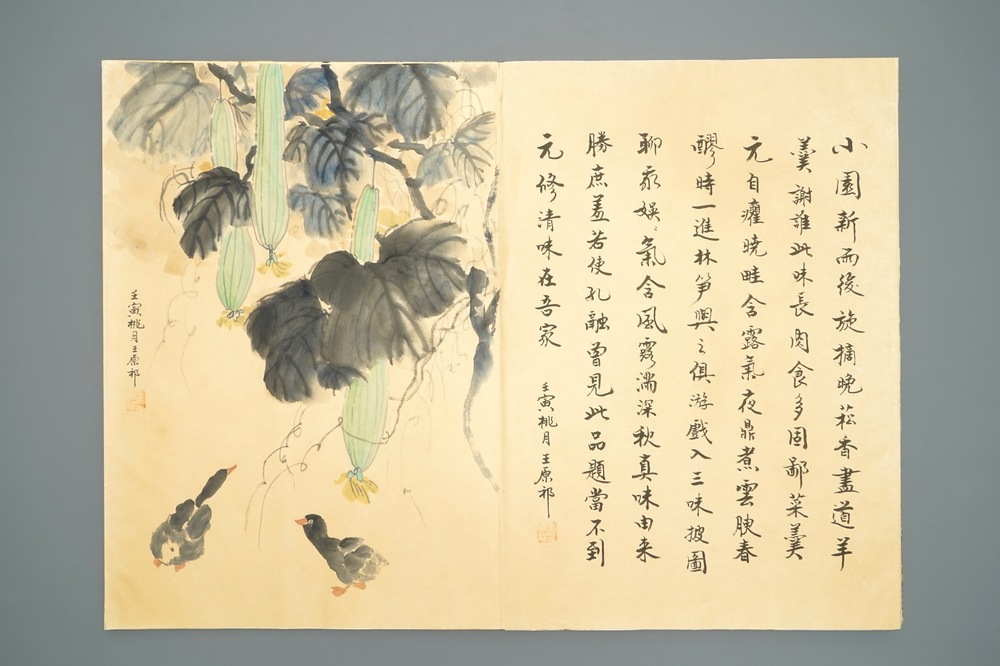 小園新雨後旋摘晚菘香盡道羊
羹謝誰此味長肉食多固鄙菜羹
元自癯曉畦含露氣夜鼎煮雲腴春
醪時一進林笋興之俱游戲入三味披圖
聊永娛氣含風露滿深秋真味由來
勝庶羞若使孔融曾見此品題當不到
元修清味在吾家
壬寅桃月王原祁
壬寅桃月王原祁